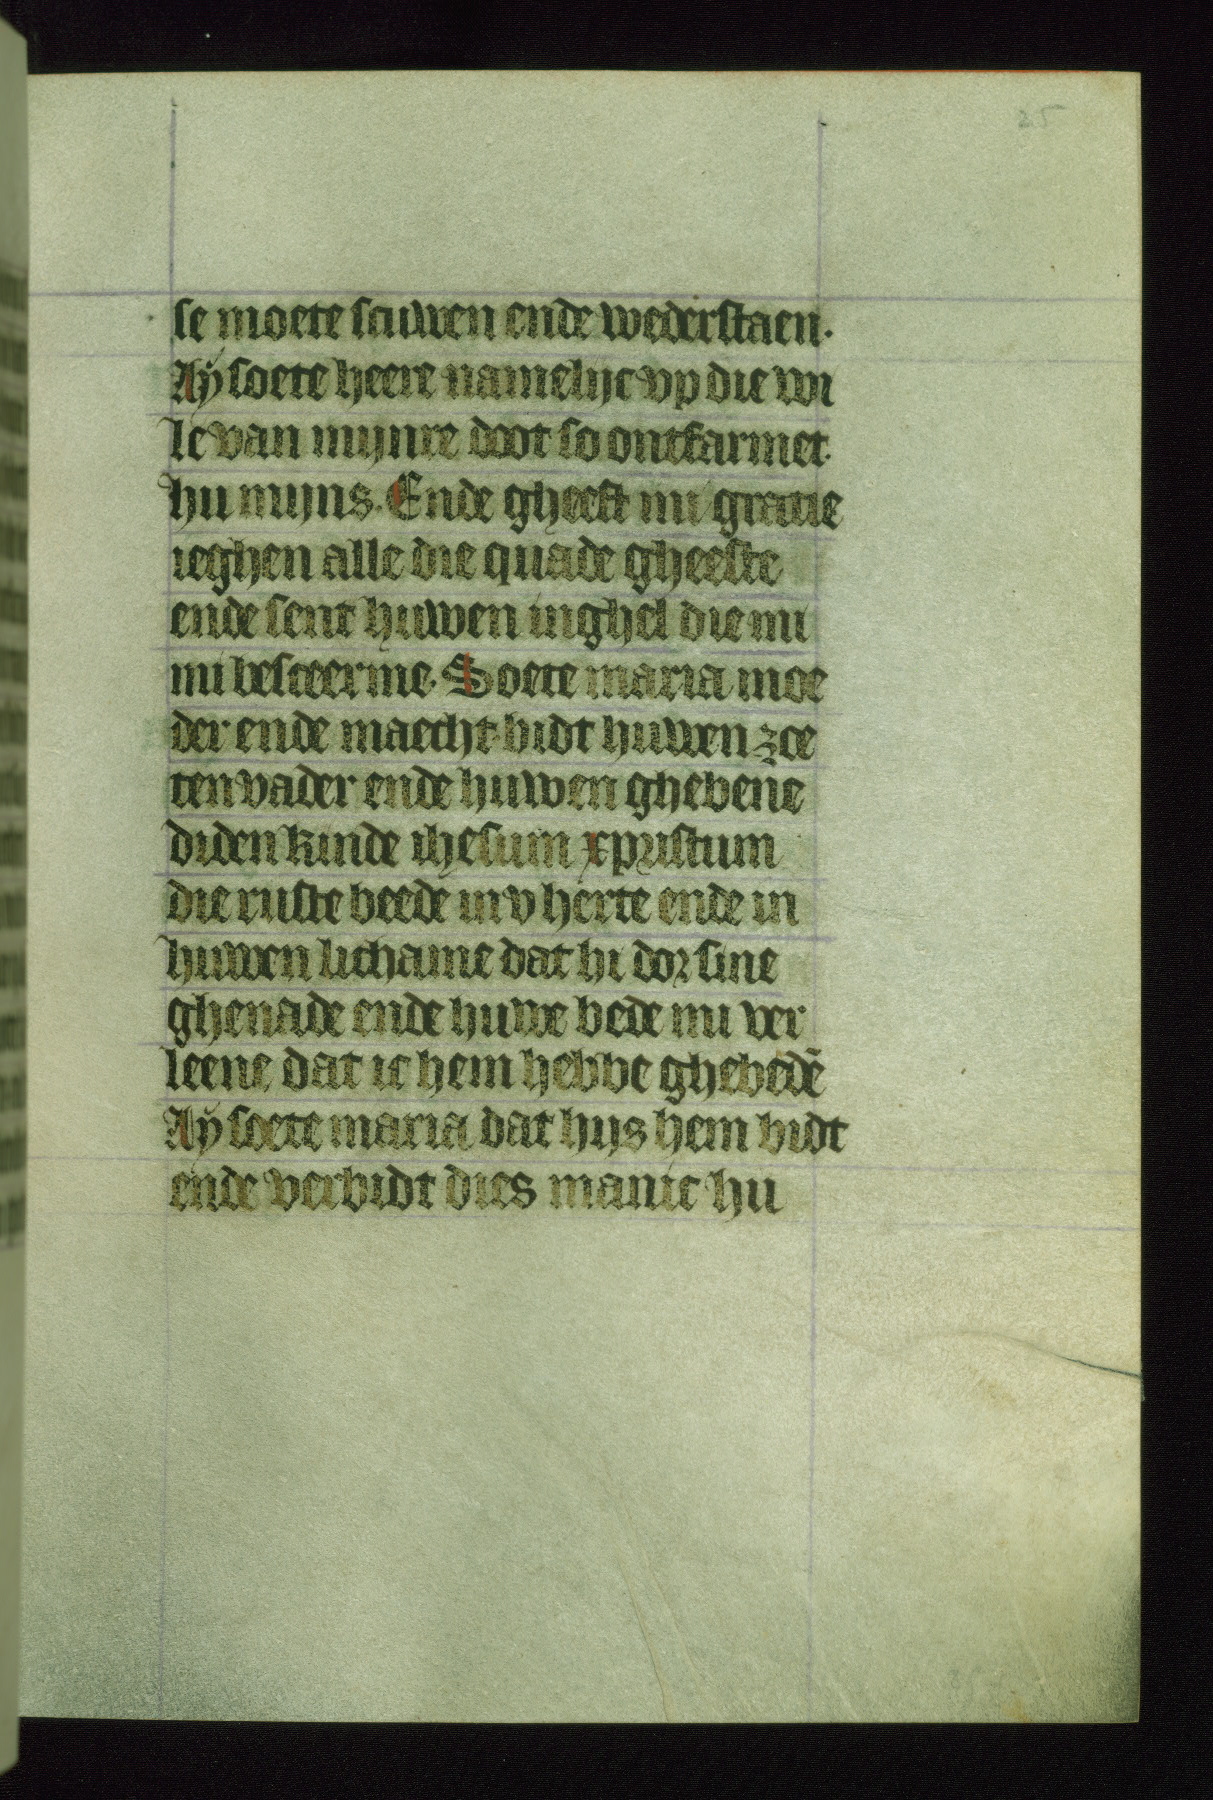 25
se moete scuwen ende wederstaen.
Ay soete heere namelijc vp die wi
le van mijnre doot so ontfarmet.
hu mijns. Ende gheeft mi gratie
ieghen alle die quade gheeste
ende sent huwen inghel die mi
mi besceerme. Soete maria moe
der ende maecht bidt huwen zoe
ten vader ende huwen ghebene
diden kinde ihesum xpristum
die ruste beede in v herte ende in
huwen lichame dat hi dor sine
ghenade ende huwe bede mi ver
leene dat ic hem hebbe ghebedē
Ay soete maria dat hijs hem bidt
ende verbidt dies manic hu